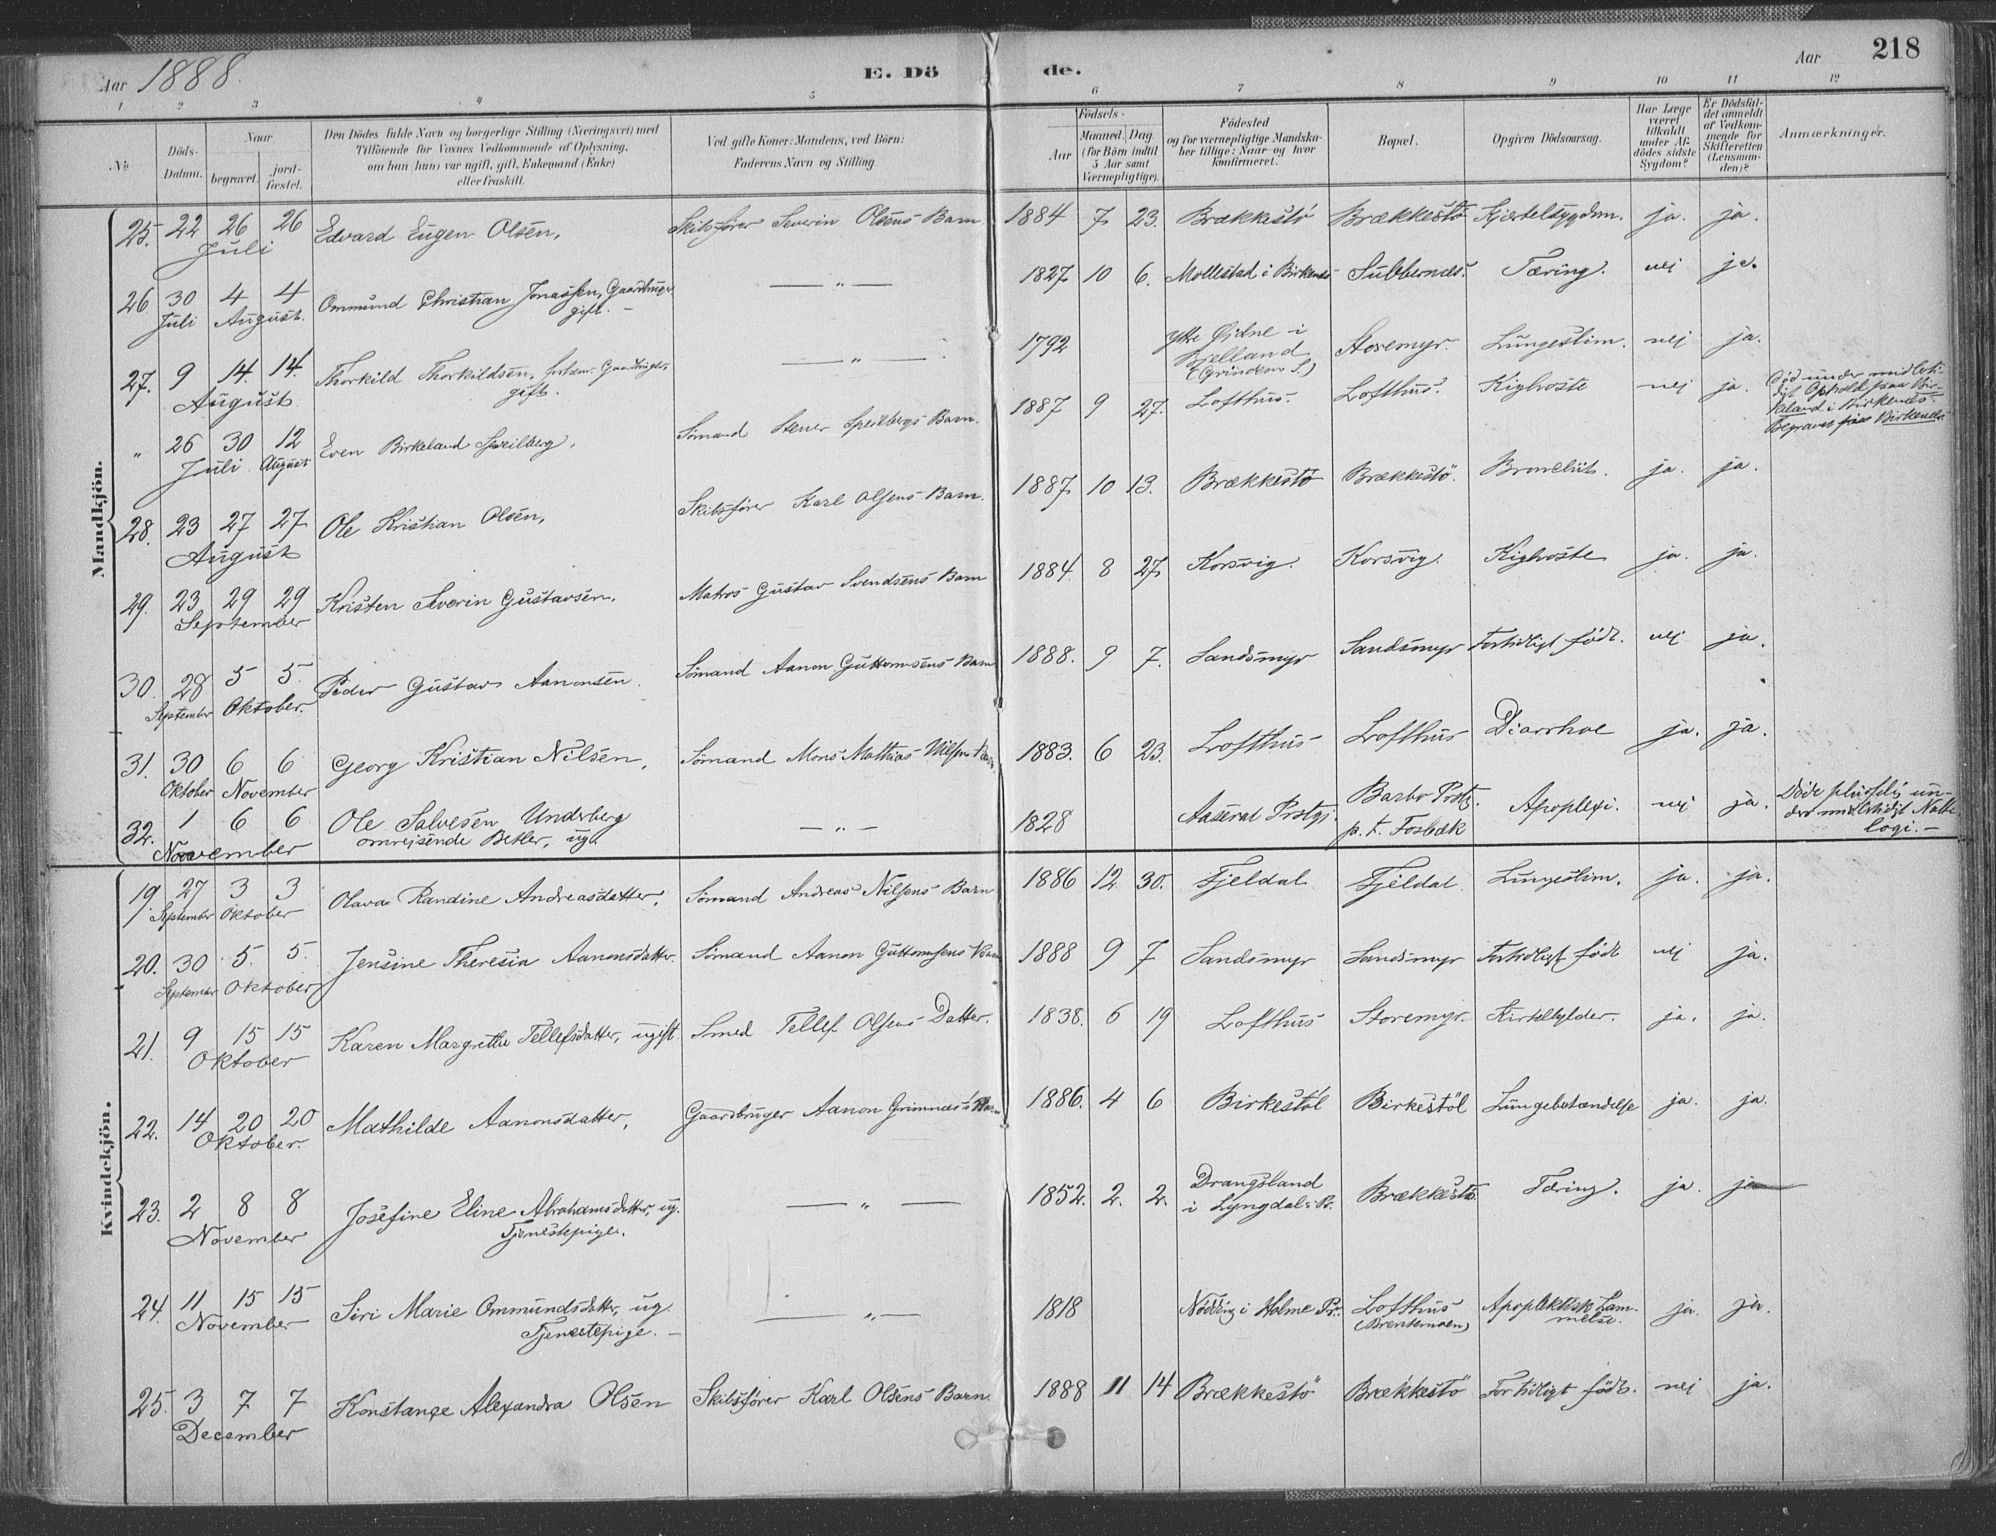 Aar 1888. E. Döde. Aar 218
1 2 3 4 5 6 7 8 9 10 11 12
No
Döds-Datum.
Naar
begravet.
jordfæstet.
Den Dödes fulde Navn og borgerlige Stilling (Næringsvei) med
Tilföiende for Voxnes Vedkommende af Oplysning,
om han (hun) var ugift, gift, Enkemand (Enke)
eller fraskilt.
Ved gifte Koner: Mandens, ved Börn:
Faderens Navn og Stilling.
Födsels-
Aar
Maaned. Dag.
(for Börn indtil
5 Aar samt
Værnepligtige).
Födested
og for værnepligtige Mandska-
ber tillige: Naar og hvor
konfirmeret.
Bopæl.
Opgiven Dödsaarsag.
Har Læge
været
tilkaldt
under Af-
dödes sidste
Sygdom?
Er Dödsfal-
det anmeldt
af Vedkom-
mende for
Skifteretten
(Lensman-
den)?
Anmærkninger.
Mandkjön.
25. 22 26 26 Edvard Eugen Olsen, Skibsfører Severin Olsens Barn 1884 7 23. Brækkestø Brækkestø Kjertelsygdom. ja. ja.
Juli
26 30 4 4 Ommund Christian Jonassen, Gaardbruger — " — 1827 10 6. Mollestad i Birkenes Tæring. nei ja.
Juli August. gift. —
27. 9 14. 14. Thorkild Thorkildsen, Gaardbruger, — " — 1792 Ytre Øidne i Storemyr. Lungeslim. nei ja.
August gift. Bjelland
(Grindem S.)
" 26 30 12 Even Birkeland Speilberg, Sømand Stener Speilbergs Barn. 1887 9 27. Lofthus. Lofthus. Kighoste nei ja. Død under midlerti-
Juli August digt Ophold paa Bir-
keland i Birkenes.
Begravet paa Birkenes.
28. 23 27 27 Ole Kristian Olsen, Skibsfører Karl Olsens Barn. 1887 10 13. Brækkestø Brækkestø. ja. ja.
August
29. 23 29 29 Kristen Severin Gustavsen. Matros Gustav Svendsens Barn 1884. 8 27 Korsvig. Korsvig. Kighoste ja. ja.
September
30. 28 5 5. Peder Gustav Aanonsen. Sømand Aanon Guttormsens Barn 1888. 9 7. Sandsmyr Sandsmyr Fortidligt født. nei ja.
September Oktober.
31. 30 6 6 Georg Kristian Nilsen, Sømand Mons Mathias Nilsens Barn 1883. 6 23. Lofthus Lofthus Diarrhoe ja. ja.
Oktober November
32. 1 6 6 Ole Salvesen Underberg — " — 1828 Aaseral Prstgj. Barbo Prstgj. Apoplexi. nei ja. Døde pludselig un-
November omreisende Betler, ug. p. t. Fosbæk der midlertidigt Natte-
logi. —
Kvindekjön.
19. 27 3 3 Olava Randine Andreasdatter, Sømand Andreas Nilsens Barn 1886 12 30. Fjeldal Fjeldal Lungeslim. ja. ja.
September Oktober
20. 30 5. 5. Jensine Theresia Aanonsdatter. Sømand Aanon Guttormsens Barn 1888 9 7 Sandsmyr Sandsmyr Fortidligt født nei ja.
September Oktober
21. 9 15 15 Karen Margrethe Tellefsdatter, ugift Smed Tellef Olsens Datter. 1838. 6 19 Lofthus Storemyr. Kirtelbylder. ja. ja.
Oktober
22. 14 20 20 Mathilde Aanonsdatter, Gaardbruger Aanon Grimnæs' Barn 1886. 4 6 Birkestøl Birkestøl Lungebetændelse ja. ja.
Oktober.
23. 2 8 8 Josefine Eline Abrahamsdatter, ug. — " — 1852. 2. 2. Drangsland Brækkestø. Tæring. ja. ja
November Tjenestepige. i Lyngdal. Pr.
24. 11 15 15 Siri Marie Ommundsdatter, ug. — " — 1818 Nødding i Holme Pr. Lofthus Apoplektisk Lam- ja. ja.
November Tjenestepige. — (Brentemoen) melse.
25. 3 7 7 Konstanse Alexandra Olsen Skibsfører Karl Olsens Barn. 1888 11 14 Brækkestø Brækkestø Fortidligt født. nei ja.
December